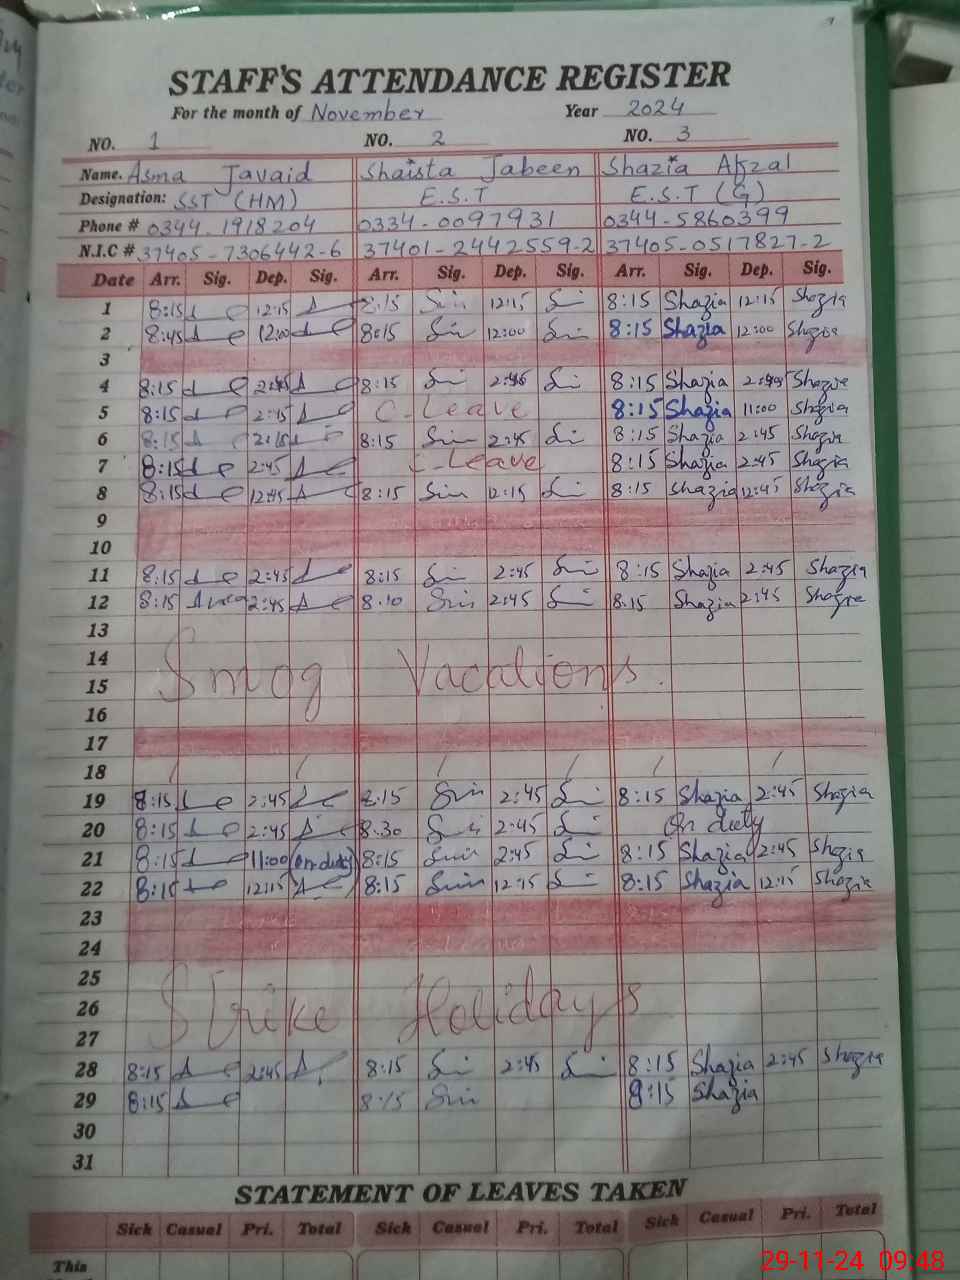 STAFF'S ATTENDANCE REGISTER
For the month of November Year 2024
NO. 1 NO. 2 NO. 3
Name. Asma Javaid Shaista Jabeen Shazia Afzal
Designation: SST (HM) E.S.T E.S.T (G)
Phone # 0344-1918204 0334-0097931 0344-5860399
N.I.C # 37405-7306442-6 37401-2442559-2 37405-0517827-2
Date Arr. Sig. Dep. Sig. Arr. Sig. Dep. Sig. Arr. Sig. Dep. Sig.
1 8:15 12:15 8:15 12:15 8:15 Shazia 12:15 Shazia
2 8:45 12:00 8:15 12:00 8:15 Shazia 12:00 Shazia
3
4 8:15 2:45 8:15 2:45 8:15 Shazia 2:45 Shazia
5 8:15 2:45 C-Leave 8:15 Shazia 11:00 Shazia
6 8:15 8:15 2:45 8:15 Shazia 2:45 Shazia
7 8:15 2:45 C-Leave 8:15 Shazia 2:45 Shazia
8 8:15 12:45 8:15 12:15 8:15 Shazia 12:45 Shazia
9
10
11 8:15 2:45 8:15 2:45 8:15 Shazia 2:45 Shazia
12 8:15 2:45 8:10 2:45 8:15 Shazia 2:45 Shazia
13
14 Smog Vacations.
15
16
17
18 / / / / / /
19 8:15 2:45 8:15 2:45 8:15 Shazia 2:45 Shazia
20 8:15 2:45 8:30 2:45 On duty
21 8:15 11:00 (on duty) 8:15 2:45 8:15 Shazia 2:45 Shazia
22 8:15 12:15 8:15 12:15 8:15 Shazia 12:15 Shazia
23
24
25
26 Strike Holidays
27
28 8:15 2:45 8:15 2:45 8:15 Shazia 2:45 Shazia
29 8:15 8:15 8:15 Shazia
30
31
STATEMENT OF LEAVES TAKEN
Sick Casual Pri. Total Sick Casual Pri. Total Sick Casual Pri. Total
This
29-11-24 09:48